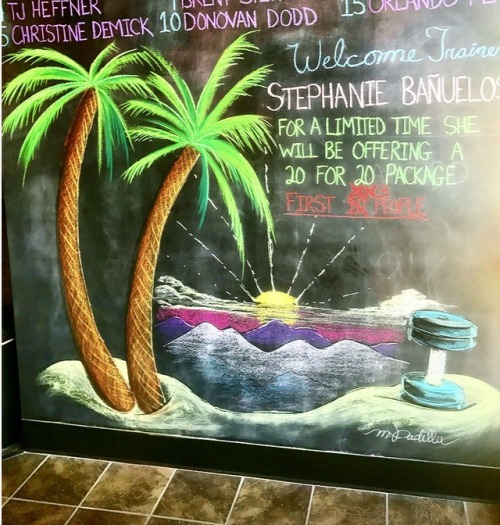 TJ HEFFNER
CHRISTINE DEMICK
10 DONOVAN DODD
15 ORLANDO
Welcome Trainer
STEPHANIE BAÑUELOS
FOR A LIMITED TIME SHE
WILL BE OFFERING A
20 FOR 20 PACKAGE
FIRST PEOPLE
M Padilla